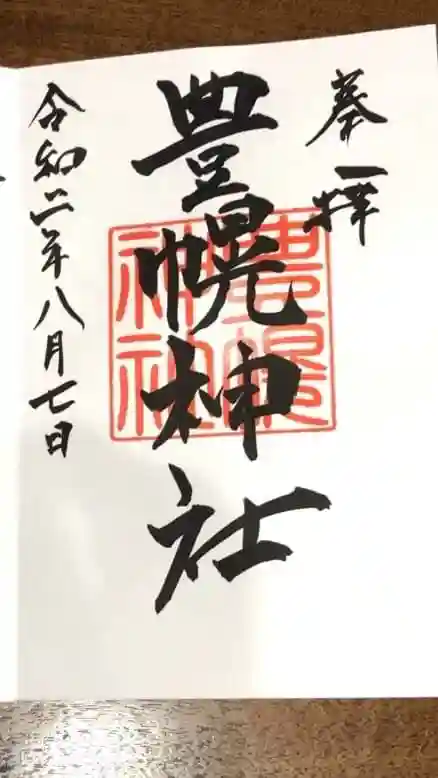 奉拝
豊幌神社
令和二年八月七日
豊幌神社